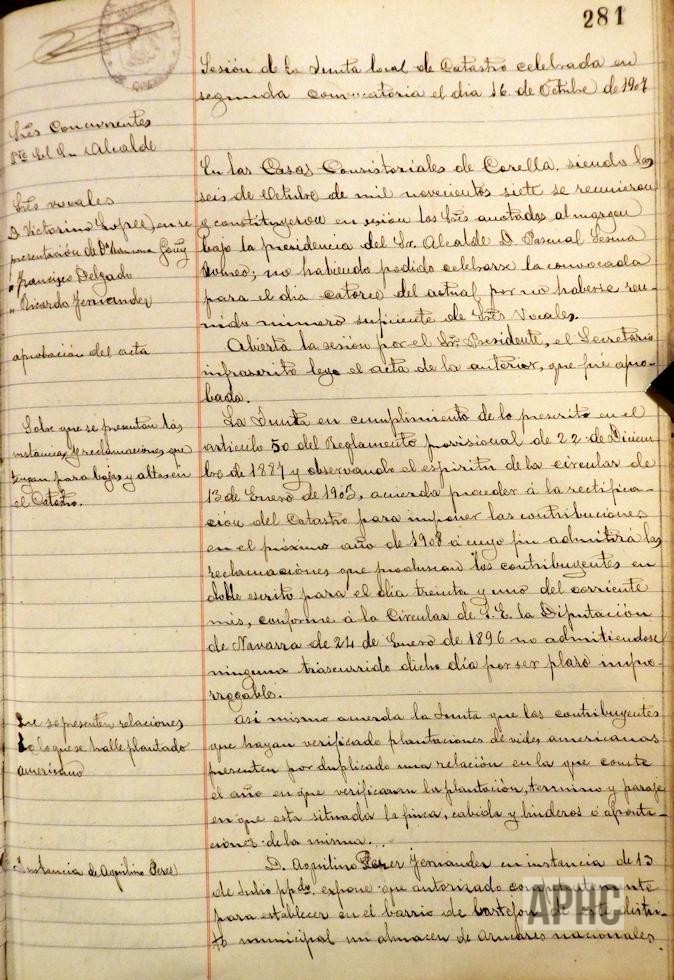 281
Sesión de la Junta local de Catastro celebrada en
segunda convocatoria el dia 16 de Octubre de 1907
Sres Concurrentes
Pte del Sr Alcalde
Sres vocales
D. Victorino Lopez, en re
presentación de Dª Ramona Goñi
" Francisco Delgado
" Ricardo Fernandez
En las Casas Consistoriales de Corella, siendo las
seis de Octubre de mil novecientos siete se reunieron
y constituyeron en sesión los Sres anotados al margen
bajo la presidencia del Sr. Alcalde D. Pascual Sesma
Romeo; no habiendo podido celebrarse la convocada
para el dia catorce del actual por no haberse reu-
nido número suficiente de Sres Vocales.
aprobación del acta
Abierta la sesión por el Sr. Presidente, el Secretario
infrascrito leyó el acta de la anterior, que fué apro-
bada.
Sobre que se presentan las
instancias y reclamaciones que
hayan para bajas y altas en
el Catastro.
La Junta en cumplimiento de lo prescrito en el
articulo 50 del Reglamento provisional de 22 de Diciem-
bre de 1887 y observando el espiritu de la circular de
13 de Enero de 1903, acuerda proceder á la rectifica-
ción del Catastro para imponer las contribuciones
en el próximo año de 1908 á cuyo fin admitirá las
reclamaciones que produscan los contribuyentes en
doble escrito para el dia treinta y uno del corriente
mes, conforme á la Circular de S. E. la Diputación
de Navarra de 24 de Enero de 1896 no admitiendose
ninguna trascurrido dicho día por ser plazo impro-
rrogable.
Que se presenten relaciones
de lo que se halle plantado
americano
Asi mismo acuerda la Junta que los contribuyentes
que hayan verificado plantaciones de vides americanas
presenten por duplicado una relación en la que conste
el año en que verificaron la plantación, termino y paraje
en que está situada la finca, cabida y linderos ó afronta-
ciones de la misma.
Instancia de Aquilino Perez
D. Aquilino Perez Fernández en instancia de 13
de Julio pp.do expone que autorizado competentemente
para establecer en el barrio de Castejon de este distri-
to municipal un almacen de azucares nacionales.
APHC